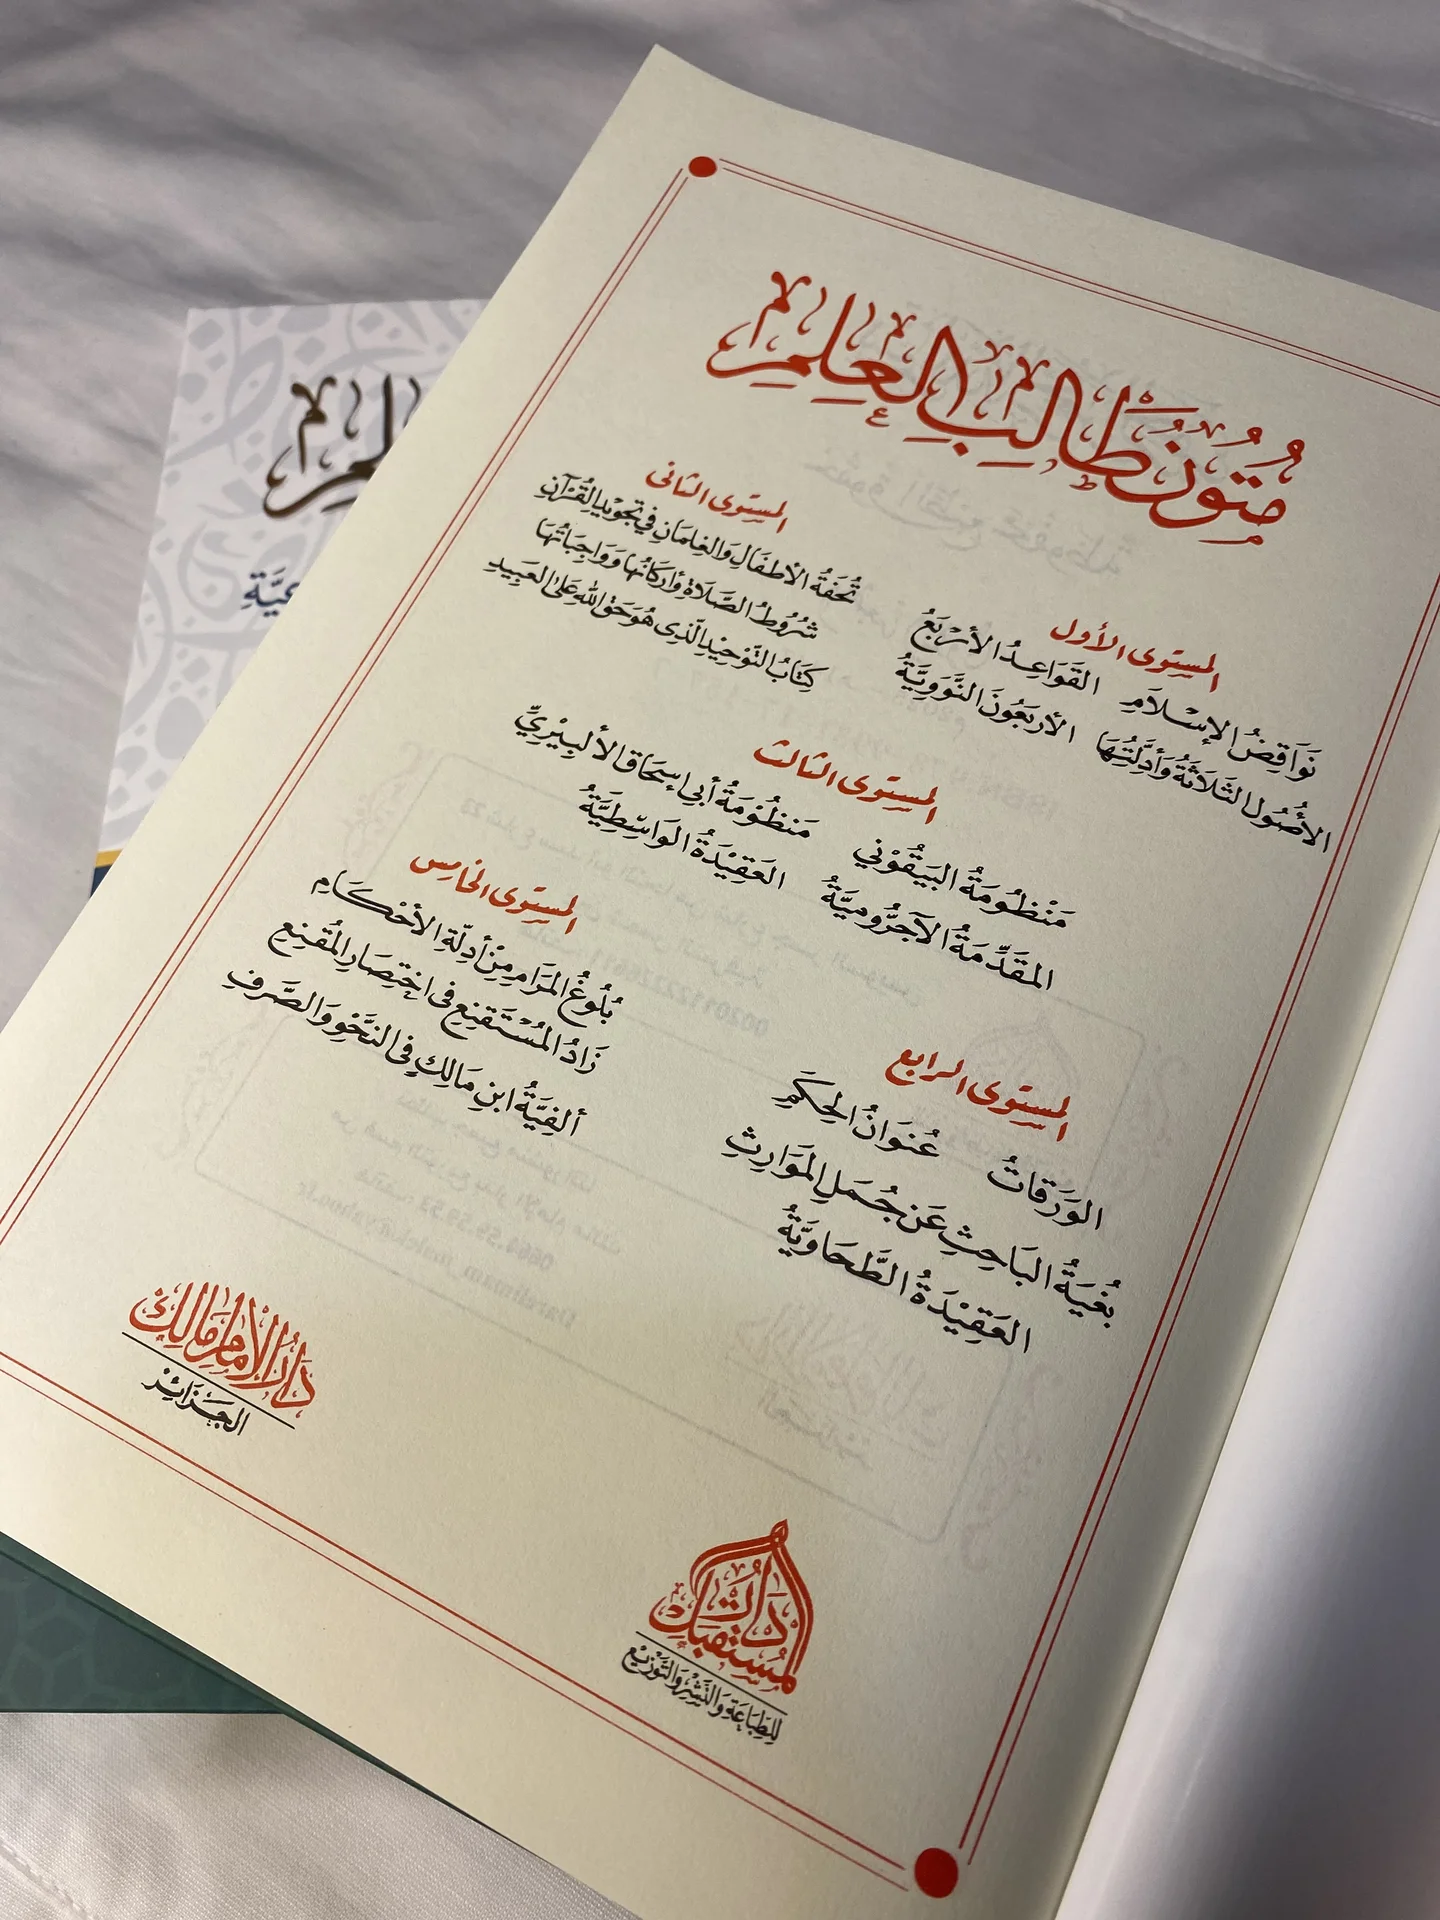 مُتُونُ طَالِبِ العِلمِ
المستوى الأول
نَوَاقِضُ الإِسْلَامِ القَوَاعِدُ الأَرْبَعُ
الأُصُولُ الثَّلَاثَةُ وَأَدِلَّتُهَا الأَربَعُونَ النَّوَوِيَّةُ
المستوى الثاني
تُحْفَةُ الأَطفَالِ وَالغِلمَانِ فِي تَجْوِيدِ القُرْآنِ
شُرُوطُ الصَّلَاةِ وَأَركَانُهَا وَوَاجِبَاتُهَا
كِتَابُ التَّوْحِيدِ الَّذِي هُوَ حَقُّ اللهِ عَلَى العَبِيدِ
المستوى الثالث
مَنْظُومَةُ البَيْقُوْنِي مَنْظُوْمَةُ أَبِي إِسحَاقَ الأَلبِيْرِيِّ
المُقَدِّمَةُ الآجُرُّومِيَّةُ العَقِيْدَةُ الوَاسِطِيَّةُ
المستوى الرابع
الوَرَقَاتُ عُنوَانُ الحِكَمِ
بُغْيَةُ البَاحِثِ عَنْ جُمَلِ المَوَارِثِ
العَقِيْدَةُ الطَّحَاوِيَّةُ
المستوى الخامس
بُلُوغُ المَرَامِ مِنْ أَدِلَّةِ الأَحْكَامِ
زَادُ المُسْتَقْنِعِ فِي اخْتِصَارِ المُقْنِعِ
أَلفِيَّةُ ابْنِ مَالِكٍ فِي النَّحْوِ وَالصَّرفِ
دَارُ الإِمَامِ مَالِكٍ
الجَزَائِر
دَارُ المُستَقبَلِ
لِلطِّبَاعَةِ وَالنَّشْرِ وَالتَّوْزِيْعِ